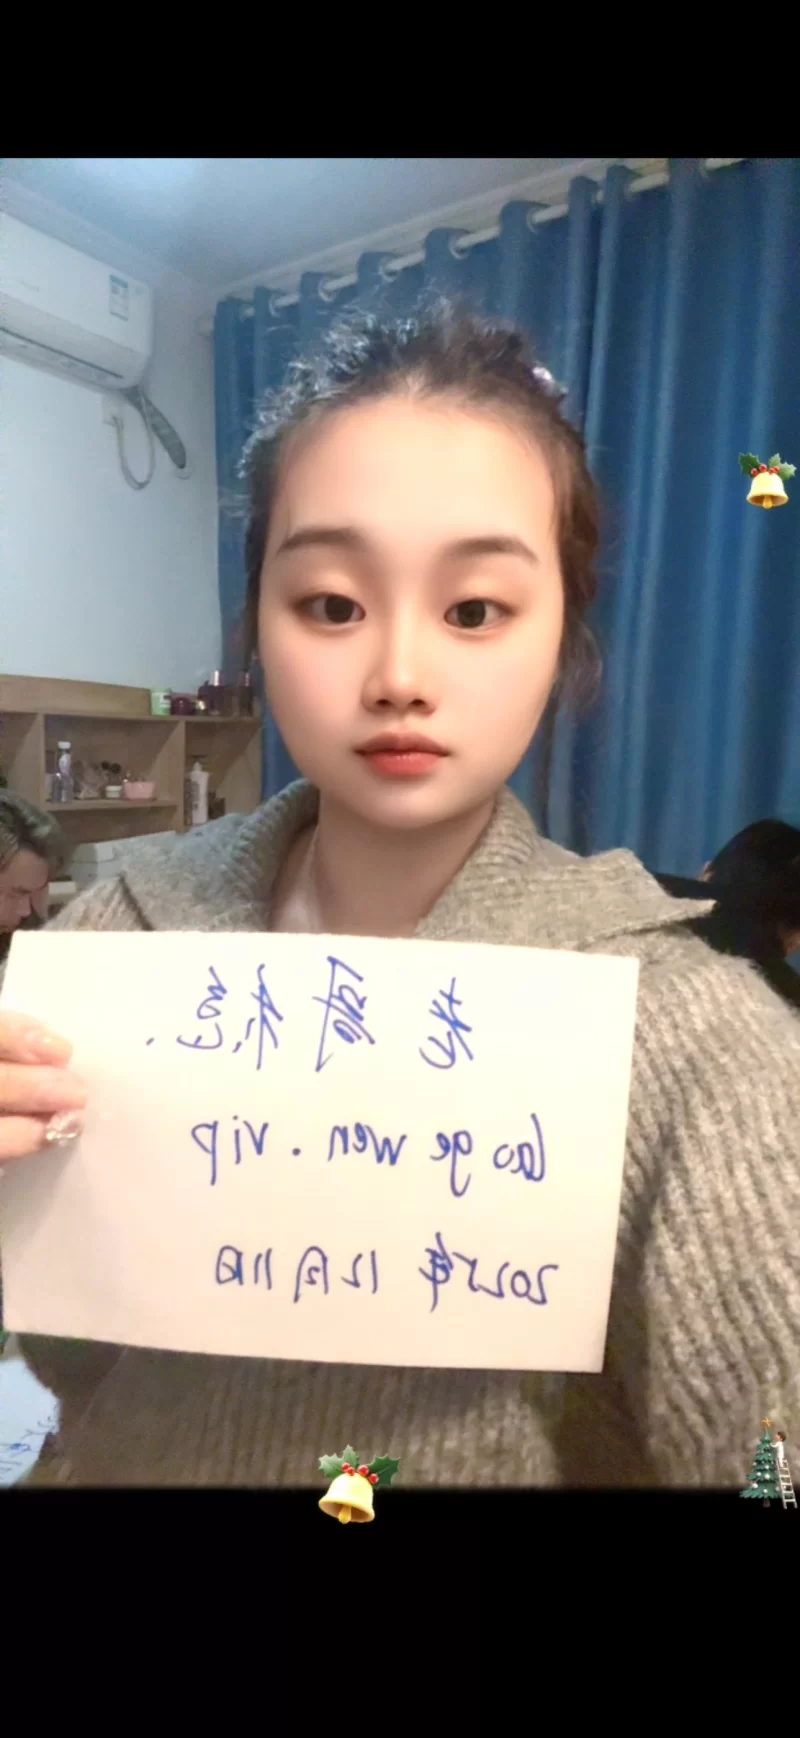 老
lao ge wen . vip
2025年12月11日